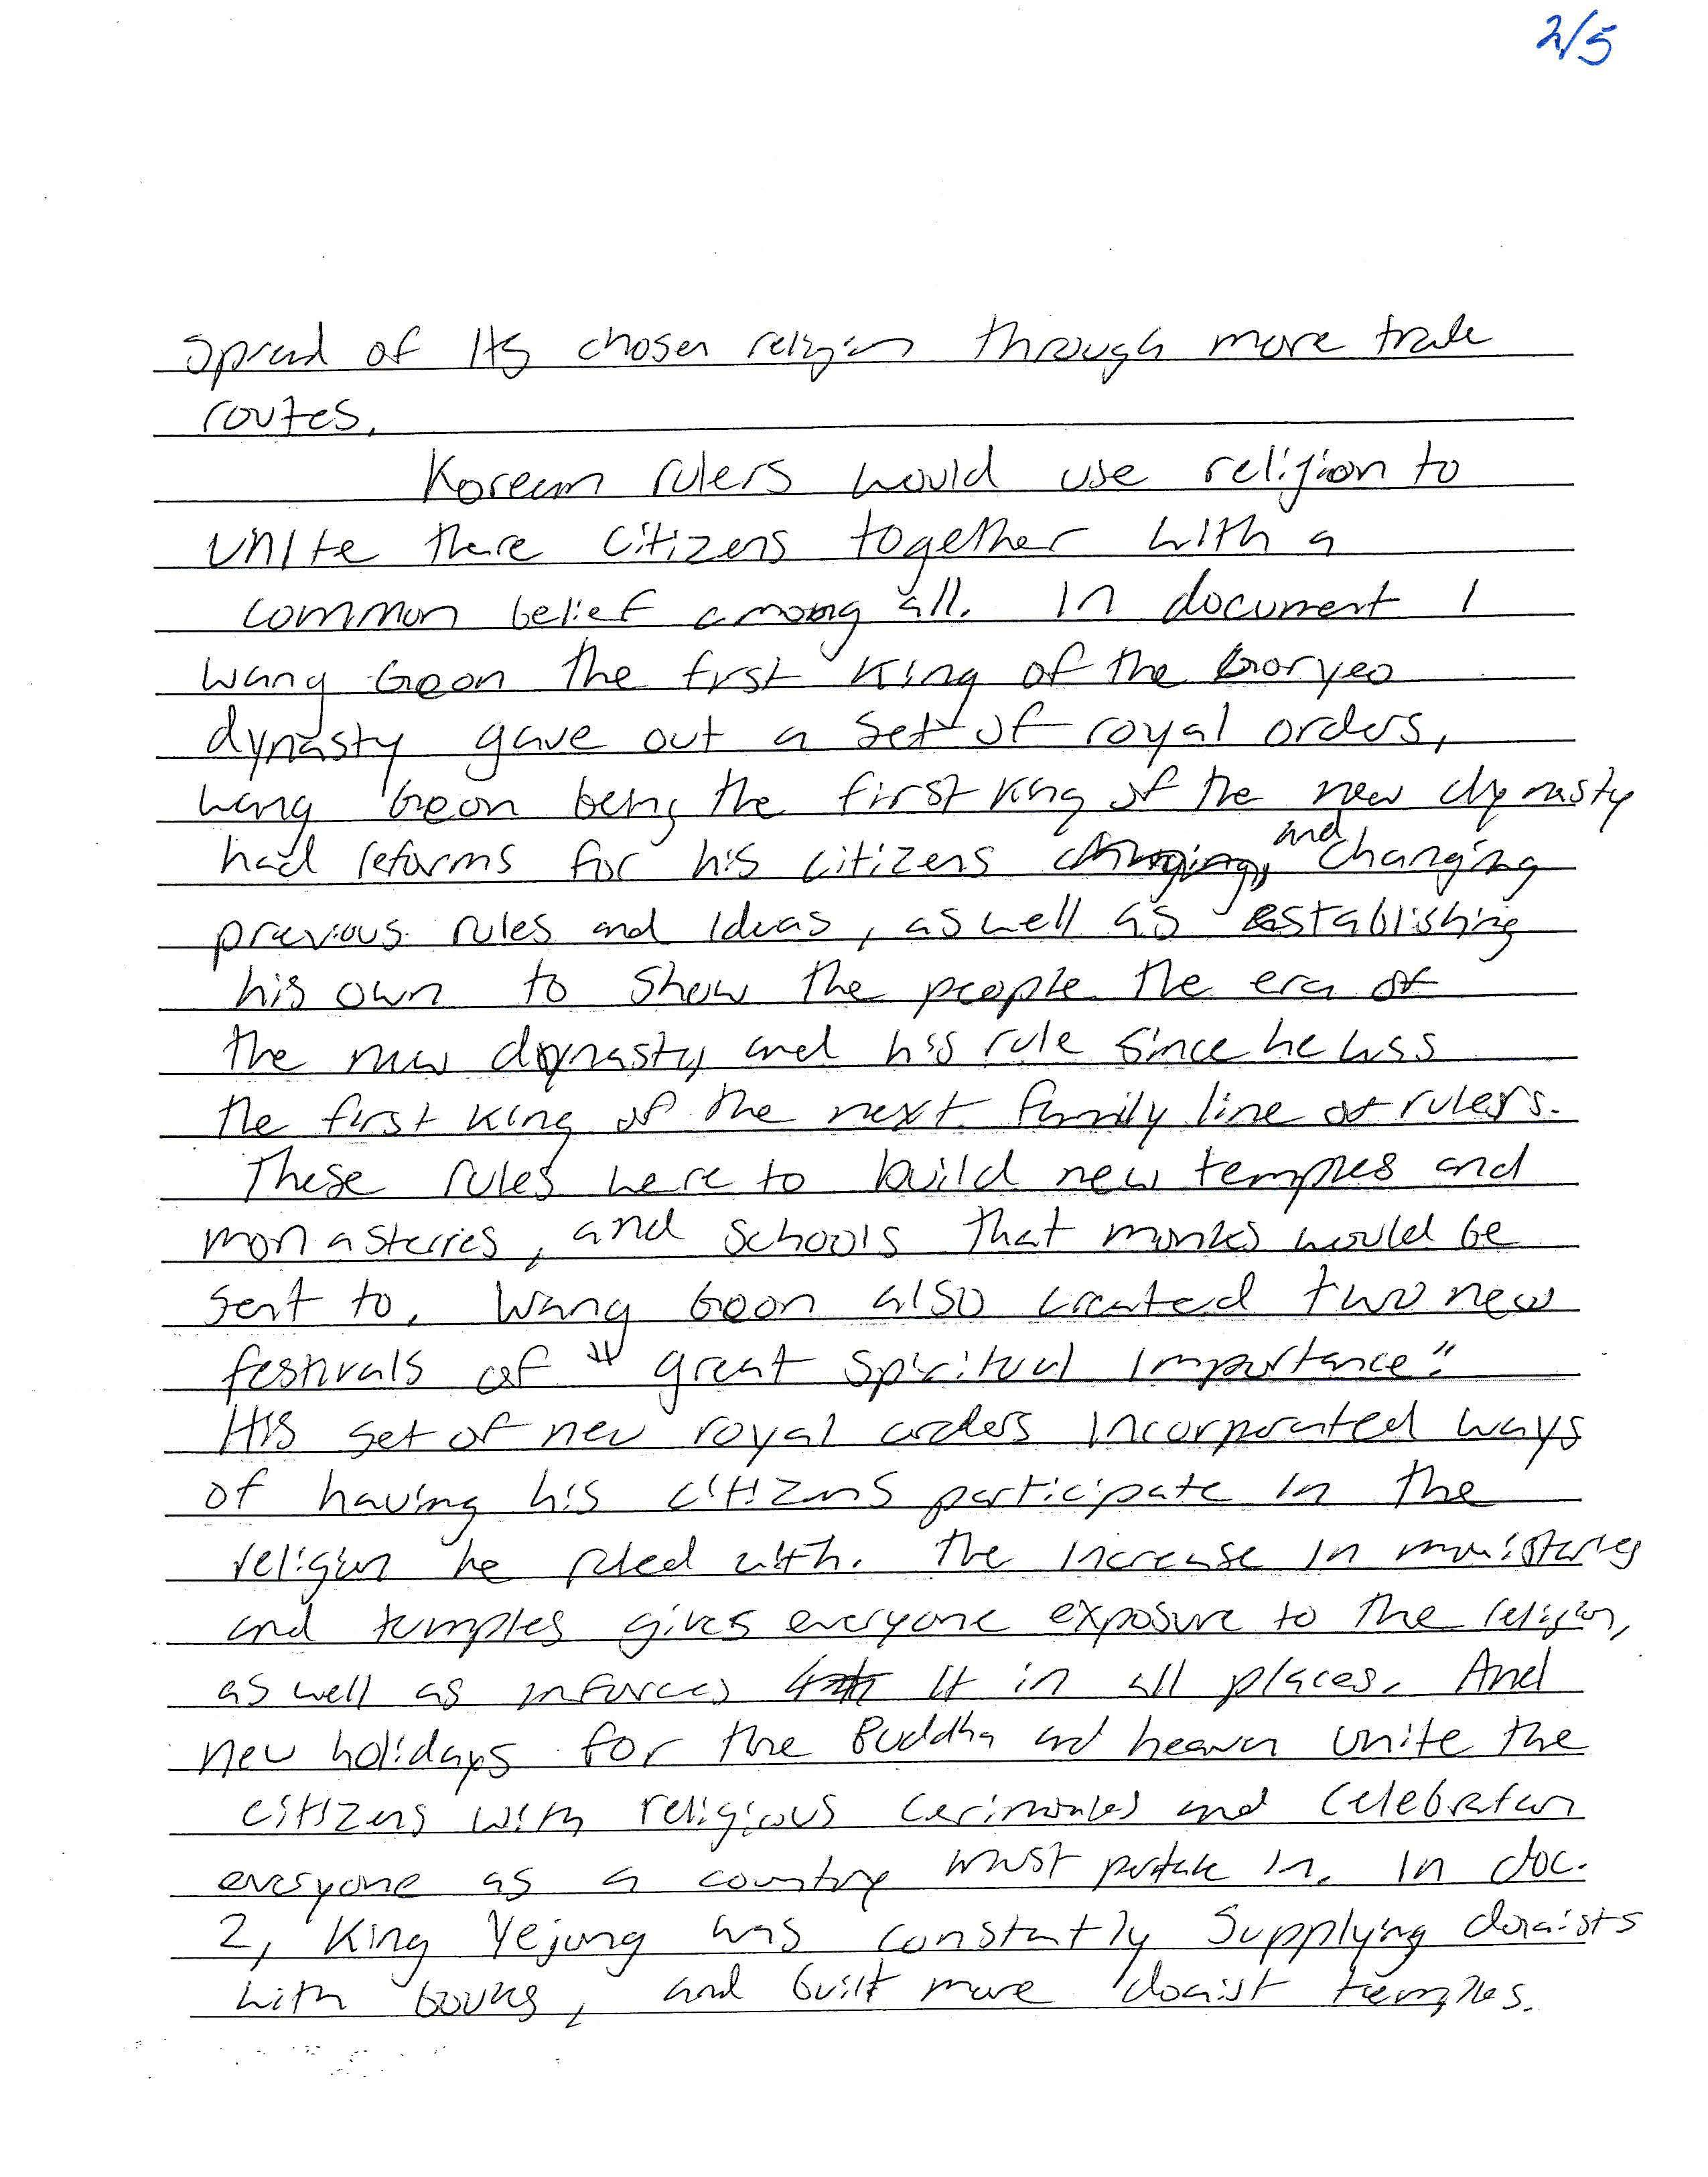 2/5
spread of its chosen religion through more trade
routes.
Korean rulers would use religion to
unite there citizens together with a
common belief among all. In document 1
Wang Geon the first king of the Goryeo
dynasty gave out a set of royal orders,
Wang Geon being the first king of the new dynasty
had reforms for his citizens and changing
previous rules and ideas, as well as establishing
his own to show the people the era of
the new dynasty and his rule since he was
the first king of the next family line of rulers.
These rules were to build new temples and
monasteries, and schools that monks would be
sent to. Wang Geon also created two new
festivals of "great spiritual importance".
His set of new royal orders incorporated ways
of having his citizens participate in the
religion he ruled with. The increase in monistaries
and temples gives everyone exposure to the religion,
as well as inforces it in all places. And
new holidays for the Buddha and heaven unite the
citizens with religious cerimonies and celebration
everyone as a country must partake in. In doc.
2, King Yejong was constantly supplying doaists
with books, and built more doaist temples.